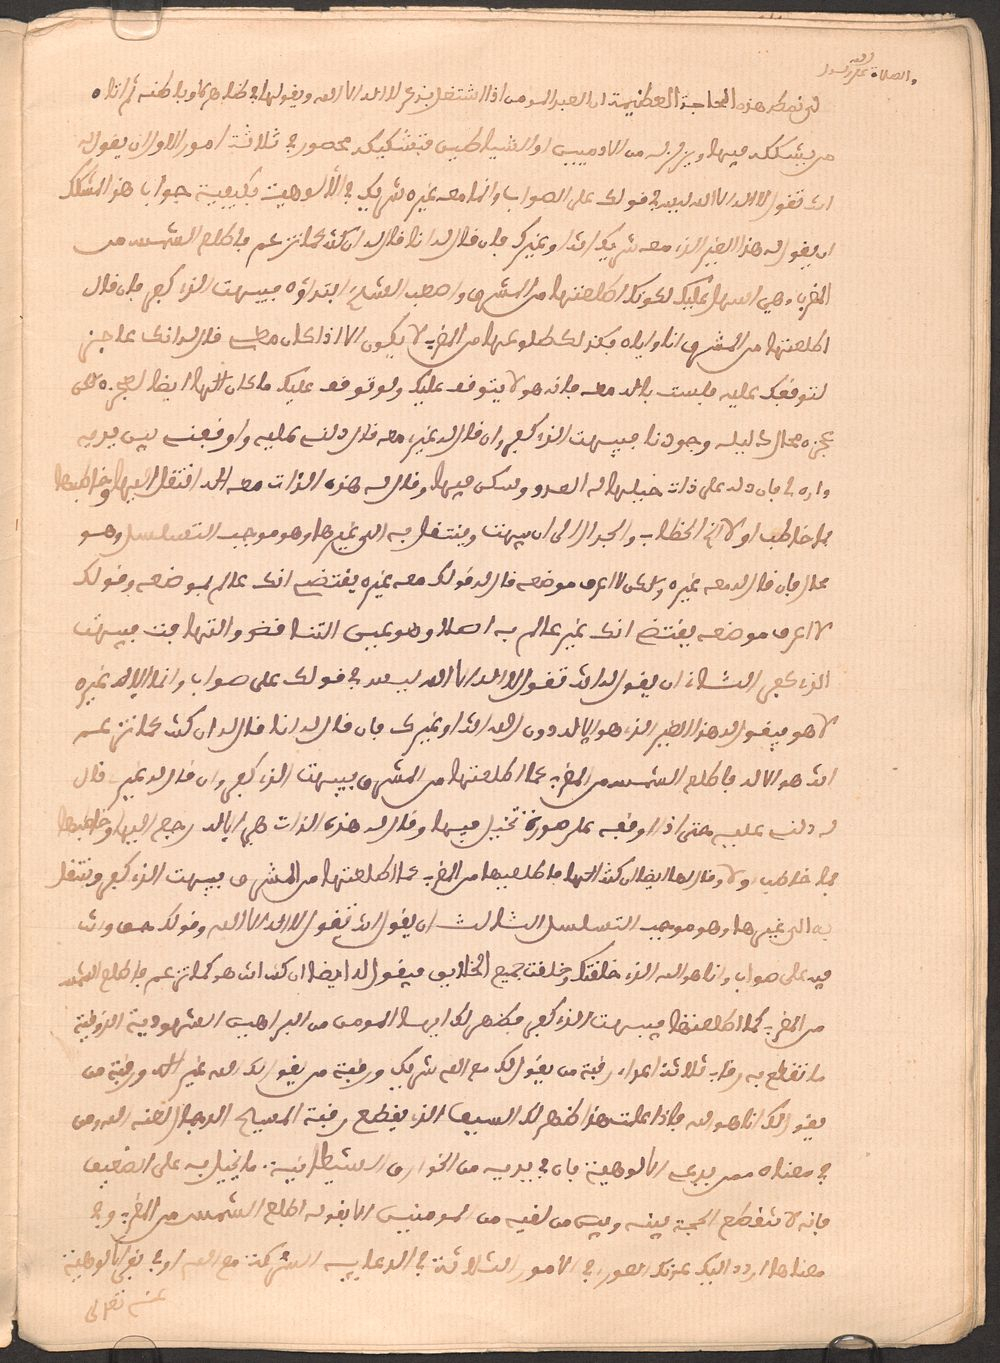 والصلاة على رسول الله
هذه المحاجة العظيمة ان العبد المومن اذا اشتغل بذكر لا اله الا الله ويقولها في ظاهره وباطنه ثم اتاه
من يشككه فيها ويزلزله من الادميين او الشياطين فتشكيكه محصور في ثلاثة امور الاول ان يقول له
انت تقول لا اله الا الله ليس في قولك على الصواب وانما معه غيره شريك في الألوهية فكيفية جواب هذا المشكك
ان يقول له هذا الغير الذي معه شريك انت او غيرك فان قال له انا قال له ان كنت كما تزعم فاطلع الشمس من
المغرب وهي اسهل عليك لكونك اطلعتها من المشرق واصعب الشيء ابتداؤه فيبهت الذي كفر فان قال
اطلعتها من المشرق انا واياه فكذلك طلوعها من المغرب لا يكون الا اذا كان معي قال له انك عاجز
لتوقفك عليه فلست باله معه فانه هو لا يتوقف عليك ولو توقف عليك ما كان الها ايضا لعجزه
عجزه محال دليله وجودنا فيبهت الذي كفر وان قال له غيري معه قال دلني عليه واوقفني بين يديه
واره لي فان دله على ذات خيلها له العدو وسكن فيها وقال له هذه الذات معه اله انتقل اليها وخاطبها
بما خاطب اولا في الخطاب والجدال الى ان يبهت وينتقل به الى غيرها وهو موجب التسلسل وهو
محال فان قال له معه غيره ولكن لا اعرف موضعه قال له قولك معه غيره يقتضي انك عالم بموضعه وقولك
لا اعرف موضعه يقتضي انك غير عالم به اصلا وهو عين التناقض والتهافت فيبهت
الذي كفر الثاني ان يقول له انت تقول لا اله الا الله ليس في قولك على صواب وانما الاله غيره
لا هو فيقول له هذا الغير الذي هو الاله دون الله انت او غيرك فان قال له انا قال له ان كنت كما تزعم
انت هو الاله فاطلع الشمس من المغرب كما اطلعتها من المشرق فيبهت الذي كفر وان قال له غيري قال
له دلني عليه حتى اذا اوقفه على صورة تخيل فيها وقال له هذه الذات هي الاله رجع اليها وخاطبها
بما خاطب اولا وقال لها ايضا ان كنت الها فاطلعيها من المغرب كما اطلعتها من المشرق فيبهت الذي كفر وينتقل
به الى غيرها وهو موجب التسلسل الثالث ان يقول انت تقول لا اله الا الله وقولك حق وانت
فيه على صواب وانا هو الله الذي خلقتك وخلقت جميع الخلايق فيقول له ايضا ان كنت انت هو كما تزعم فاطلع الشمس
من المغرب كما اطلعتها فيبهت الذي كفر فظهر لك ايها المومن من البراهين الشهودية الذوقية
ما تقطع به رقاب ثلاثة اعداء رقبة من يقول لك مع الله شريك ورقبة من يقول لك الله غير اله ورقبة من
يقول لك انا هو الله فاذا علمت هذا ظهر لك السيف الذي يقطع رقبة المسيح الدجال لعنه الله ومن
في معناه ممن يدعي الالوهية فان في يديه من الخوارق الشيطانية ما يخيل به على الضعيف
فانه لا تنقطع الحجة بينه وبين من لقيه من المومنين الا بقوله اطلع الشمس من المغرب وفي
معناها اردد اليك عزتك الصور في الامور الثلاثة في الدعاية الشركة مع الله او في نفي الالوهية
عنه تعالى